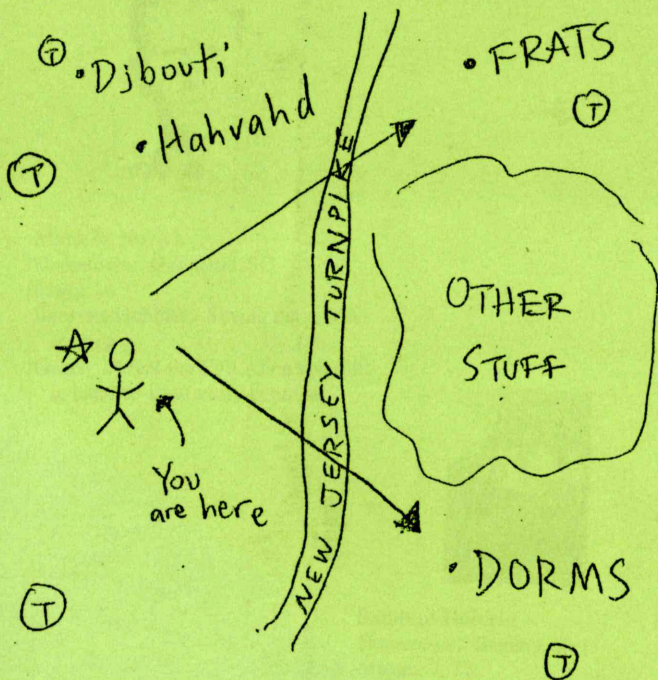 T
Djbouti
FRATS
Hahvahd
T
T
NEW JERSEY TURNPIKE
OTHER
STUFF
You
are here
DORMS
T
T